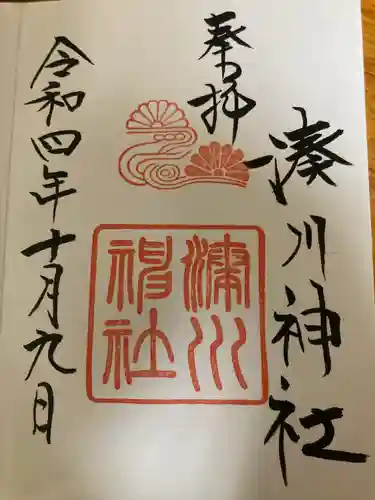 奉拝
湊川神社
湊川神社
令和四年十月九日